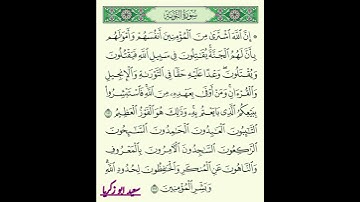 سُورَةُ التَّوْبَةِ
۞ إِنَّ ٱللَّهَ ٱشْتَرَىٰ مِنَ ٱلْمُؤْمِنِينَ أَنفُسَهُمْ وَأَمْوَٰلَهُم
بِأَنَّ لَهُمُ ٱلْجَنَّةَ ۚ يُقَٰتِلُونَ فِى سَبِيلِ ٱللَّهِ فَيَقْتُلُونَ
وَيُقْتَلُونَ ۖ وَعْدًا عَلَيْهِ حَقًّا فِى ٱلتَّوْرَىٰةِ وَٱلْإِنجِيلِ
وَٱلْقُرْءَانِ ۚ وَمَنْ أَوْفَىٰ بِعَهْدِهِۦ مِنَ ٱللَّهِ ۚ فَٱسْتَبْشِرُوا۟
بِبَيْعِكُمُ ٱلَّذِى بَايَعْتُم بِهِۦ ۚ وَذَٰلِكَ هُوَ ٱلْفَوْزُ ٱلْعَظِيمُ ١١١
ٱلتَّٰٓئِبُونَ ٱلْعَٰبِدُونَ ٱلْحَٰمِدُونَ ٱلسَّٰٓئِحُونَ
ٱلرَّٰكِعُونَ ٱلسَّٰجِدُونَ ٱلْءَامِرُونَ بِٱلْمَعْرُوفِ
وَٱلنَّاهُونَ عَنِ ٱلْمُنكَرِ وَٱلْحَٰفِظُونَ لِحُدُودِ ٱللَّهِ ۗ
وَبَشِّرِ ٱلْمُؤْمِنِينَ ١١٢
سعيد ابو زكريا